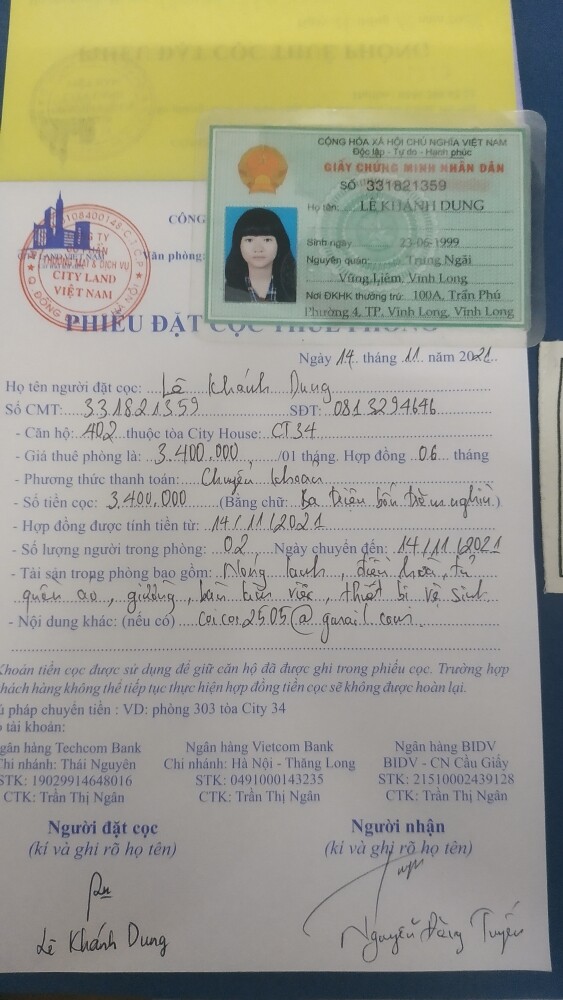 PHIẾU ĐẶT CỌC THUÊ PHÒNG
CỘNG HÒA XÃ HỘI CHỦ NGHĨA VIỆT NAM
Độc lập - Tự do - Hạnh phúc
GIẤY CHỨNG MINH NHÂN DÂN
SỐ 331821359
Họ tên: LÊ KHÁNH DUNG
Sinh ngày 23-06-1999
Nguyên quán: Trung Ngãi
Vũng Liêm, Vĩnh Long
Nơi ĐKHK thường trú: 100A, Trần Phú
Phường 4, TP, Vĩnh Long, Vĩnh Long
CÔNG
Văn phòng:
0108400148-C.T.C.P
CÔNG TY
CỔ PHẦN
THƯƠNG MẠI & DỊCH VỤ
CITY LAND
VIỆT NAM
PHIẾU ĐẶT CỌC THUÊ PHÒNG
Ngày 14 tháng 11 năm 2021
Họ tên người đặt cọc: Lê Khánh Dung
Số CMT: 331821359 SĐT: 0813294646
- Căn hộ: 402 thuộc tòa City House: CT34
- Giá thuê phòng là: 3.400.000 /01 tháng. Hợp đồng 06 tháng
- Phương thức thanh toán: Chuyển khoản
- Số tiền cọc: 3.400.000 (Bằng chữ: Ba triệu bốn trăm nghìn.)
- Hợp đồng được tính tiền từ: 14/11/2021
- Số lượng người trong phòng: 02 Ngày chuyển đến: 14/11/2021
- Tài sản trong phòng bao gồm: Nóng lạnh, điều hoà, tủ
quần áo, giường, bàn làm việc, thiết bị vệ sinh
- Nội dung khác: (nếu có) coicoi2505@gmail.com.
Khoản tiền cọc được sử dụng để giữ căn hộ đã được ghi trong phiếu cọc. Trường hợp
khách hàng không thể tiếp tục thực hiện hợp đồng tiền cọc sẽ không được hoàn lại.
ú pháp chuyển tiền : VD: phòng 303 tòa City 34
ố tài khoản:
gân hàng Techcom Bank Ngân hàng Vietcom Bank Ngân hàng BIDV
Chi nhánh: Thái Nguyên Chi nhánh: Hà Nội - Thăng Long BIDV - CN Cầu Giấy
STK: 19029914648016 STK: 0491000143235 STK: 21510002439128
CTK: Trần Thị Ngân CTK: Trần Thị Ngân CTK: Trần Thị Ngân
Người đặt cọc Người nhận
(kí và ghi rõ họ tên) (kí và ghi rõ họ tên)
Lê Khánh Dung Nguyễn Đăng Tuyến